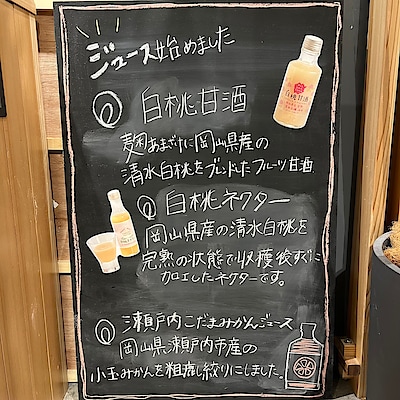 ジュース始めました
白桃甘酒
麹あまざけに岡山県産の
清水白桃をブレンドしたフルーツ甘酒
白桃ネクター
岡山県産の清水白桃を
完熟の状態で収穫後すぐに
加工したネクターです。
瀬戸内こだまみかんジュース
岡山県瀬戸内市産の
小玉みかんを粗濾し絞りにしました
白桃甘酒